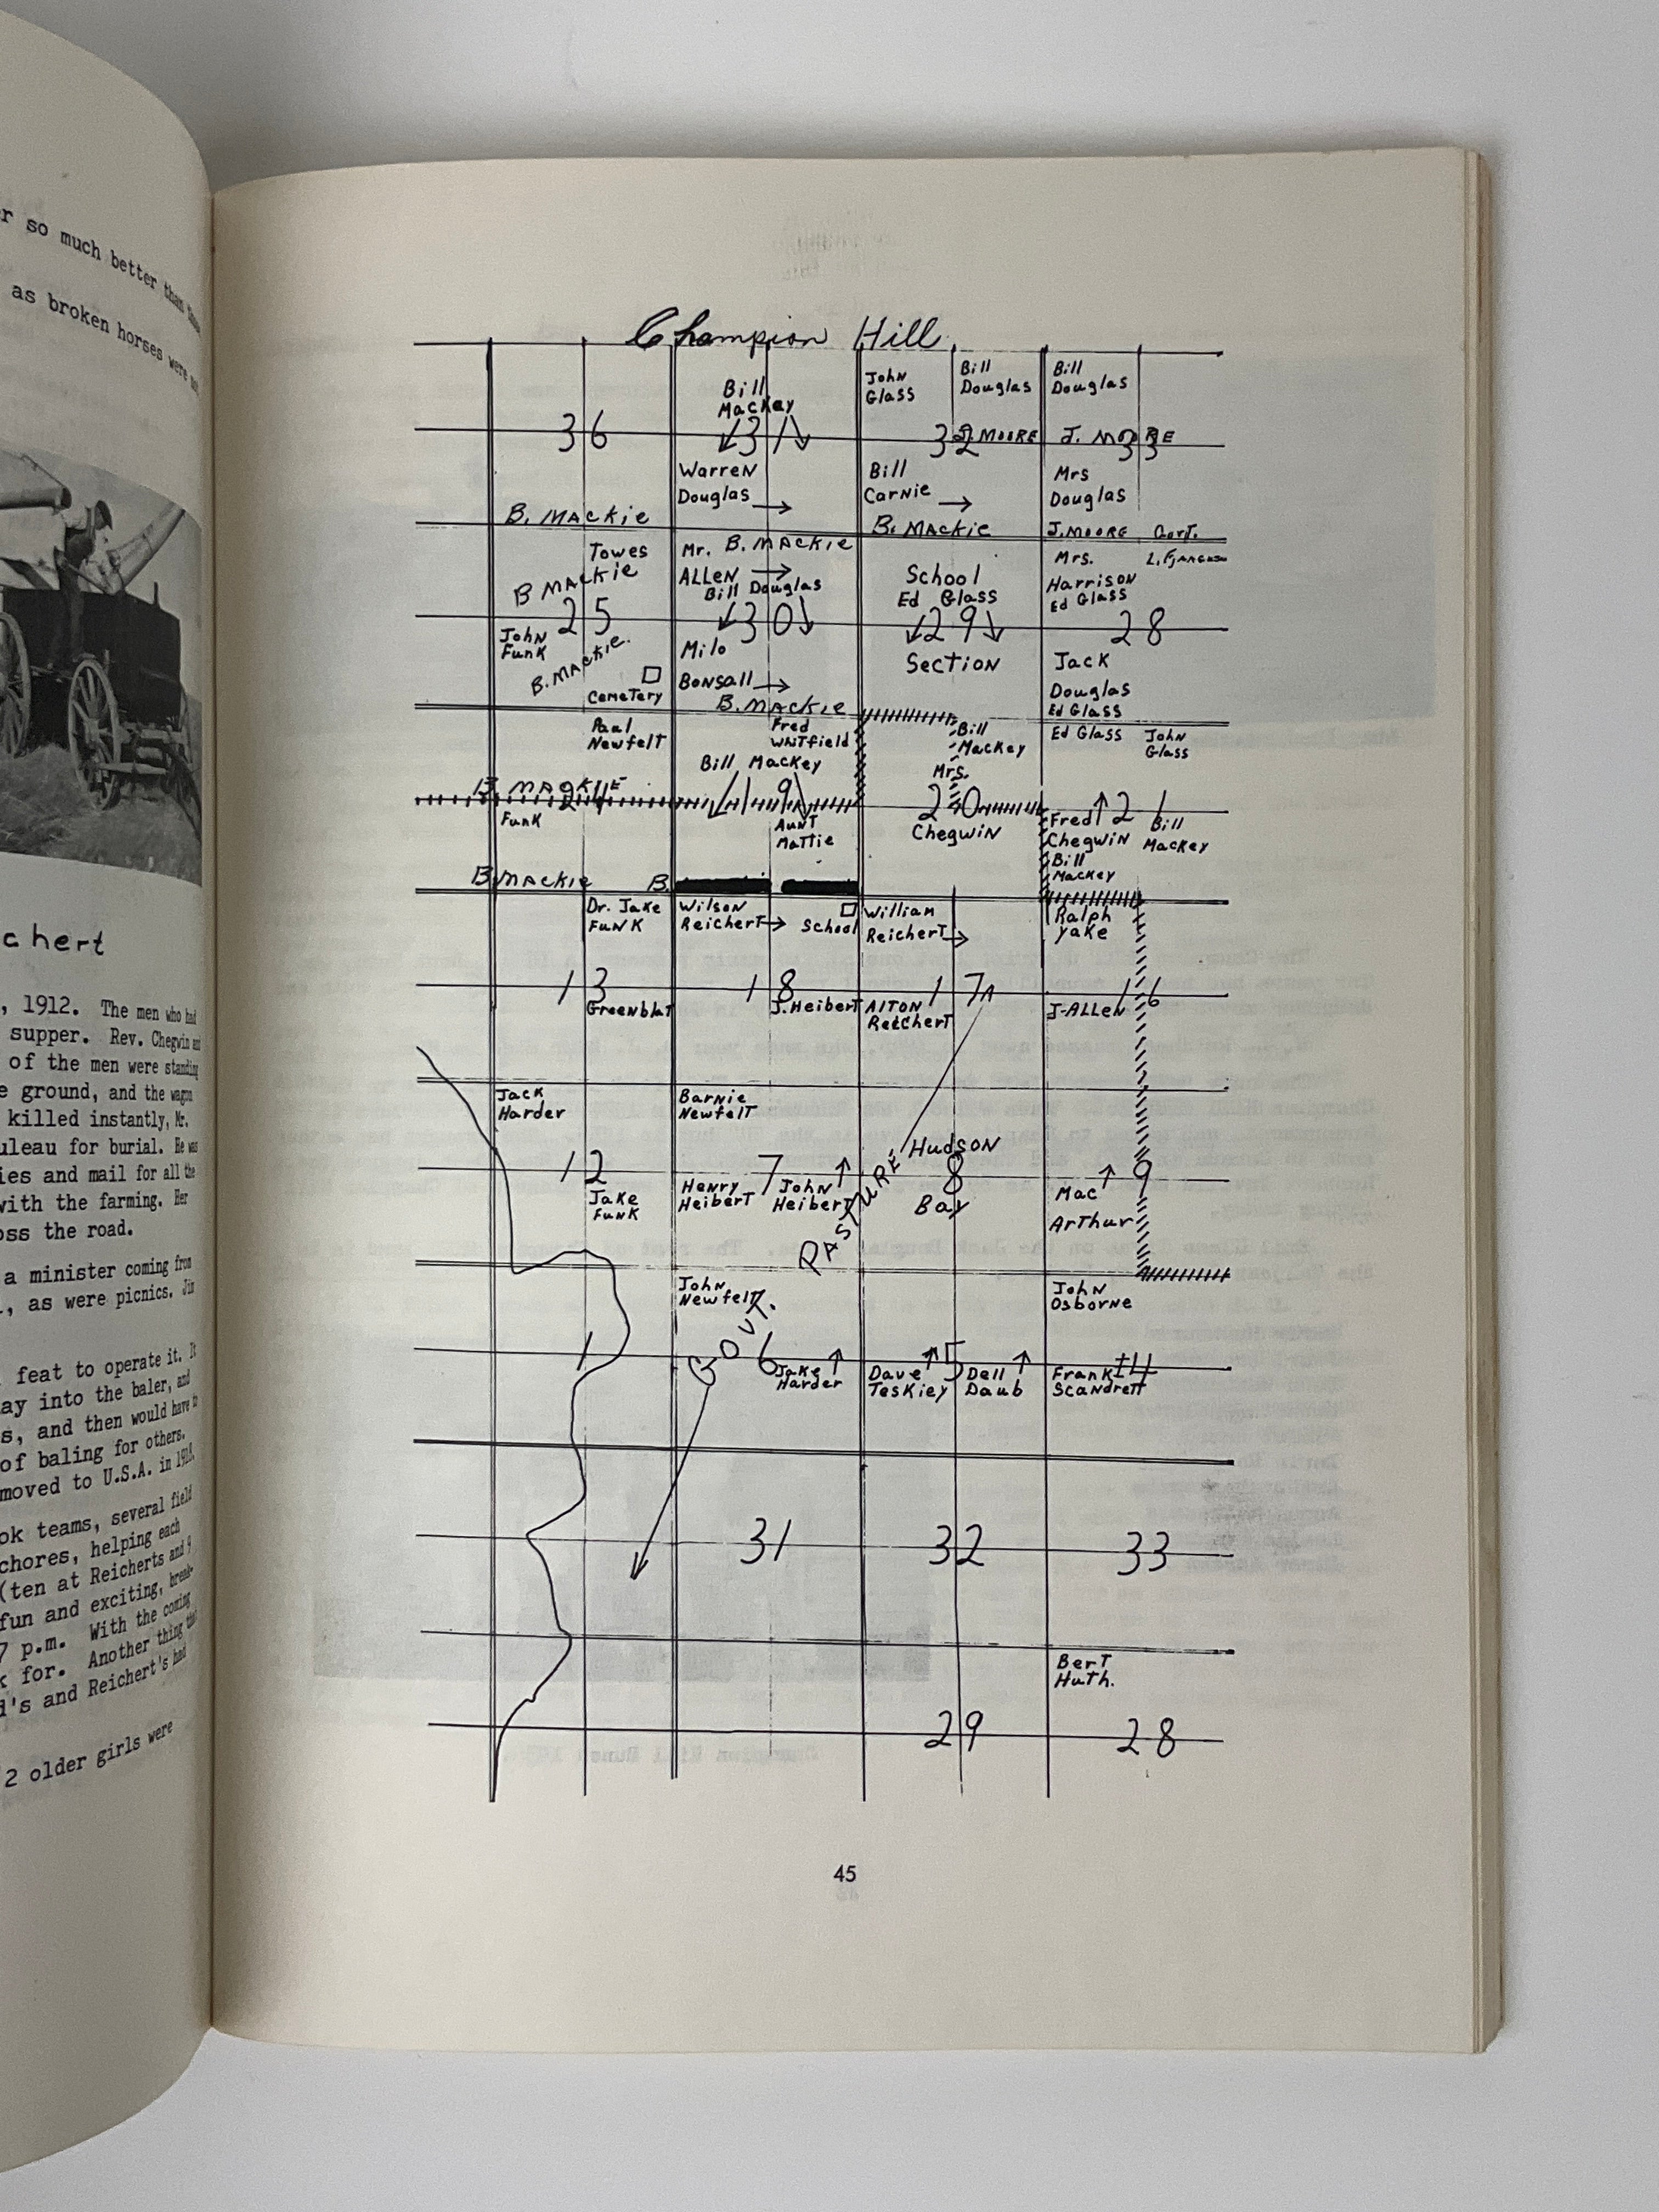 er so much better than
as broken horses were
chert
, 1912. The men who had
supper. Rev. Chegwin and
of the men were standing
e ground, and the wagon
killed instantly, Mr.
uleau for burial. He was
ies and mail for all the
with the farming. Her
oss the road.
a minister coming from
, as were picnics. Jim
feat to operate it. It
ay into the baler, and
s, and then would have to
of baling for others.
moved to U.S.A. in
ok teams, several field
chores, helping each
(ten at Reicherts and 4
fun and exciting, break-
7 p.m. With the coming
k for. Another thing
d's and Reichert's had
2 older girls were
Champion Hill
Bill
Mackey
John
Glass
Bill
Douglas
Bill
Douglas
36
31
32
J. MOORE
J. MOORE
33
Warren
Douglas
Bill
Carnie
Mrs
Douglas
B. MACKIE
B. MACKIE
J. MOORE Govt.
Towes
B MACKIE
Mr. B. MACKIE
ALLEN
Bill Douglas
School
Ed Glass
Mrs.
Harrison
Ed Glass
25
30
29
28
John
Funk
B. MACKIE
Cemetery
Milo
Bonsall
B. MACKIE
Section
Jack
Douglas
Ed Glass
Paul
Newfelt
Fred
Whitfield
Bill Mackey
Bill
Mackey
Mrs.
Ed Glass
John
Glass
B MACKIE
24
19
20
21
Funk
Aunt
Mattie
Chegwin
Fred
Chegwin
Bill
Mackey
Bill
Mackey
B. MACKIE
B.
Dr. Jake
Funk
Wilson
Reichert
School
William
Reichert
Ralph
Yake
13
18
17
16
Greenblat
J. Heibert
Alton
Reichert
J. ALLEN
Jack
Harder
Barnie
Newfelt
Hudson
12
7
8
9
Jake
Funk
Henry
Heibert
John
Heibert
Bay
Mac
Arthur
PASTURE
John
Newfelt
John
Osborne
GOVT.
1
6
5
4
Jake
Harder
Dave
Teskiey
Dell
Daub
Frank
Scandrett
31
32
33
Bert
Huth.
29
28
45